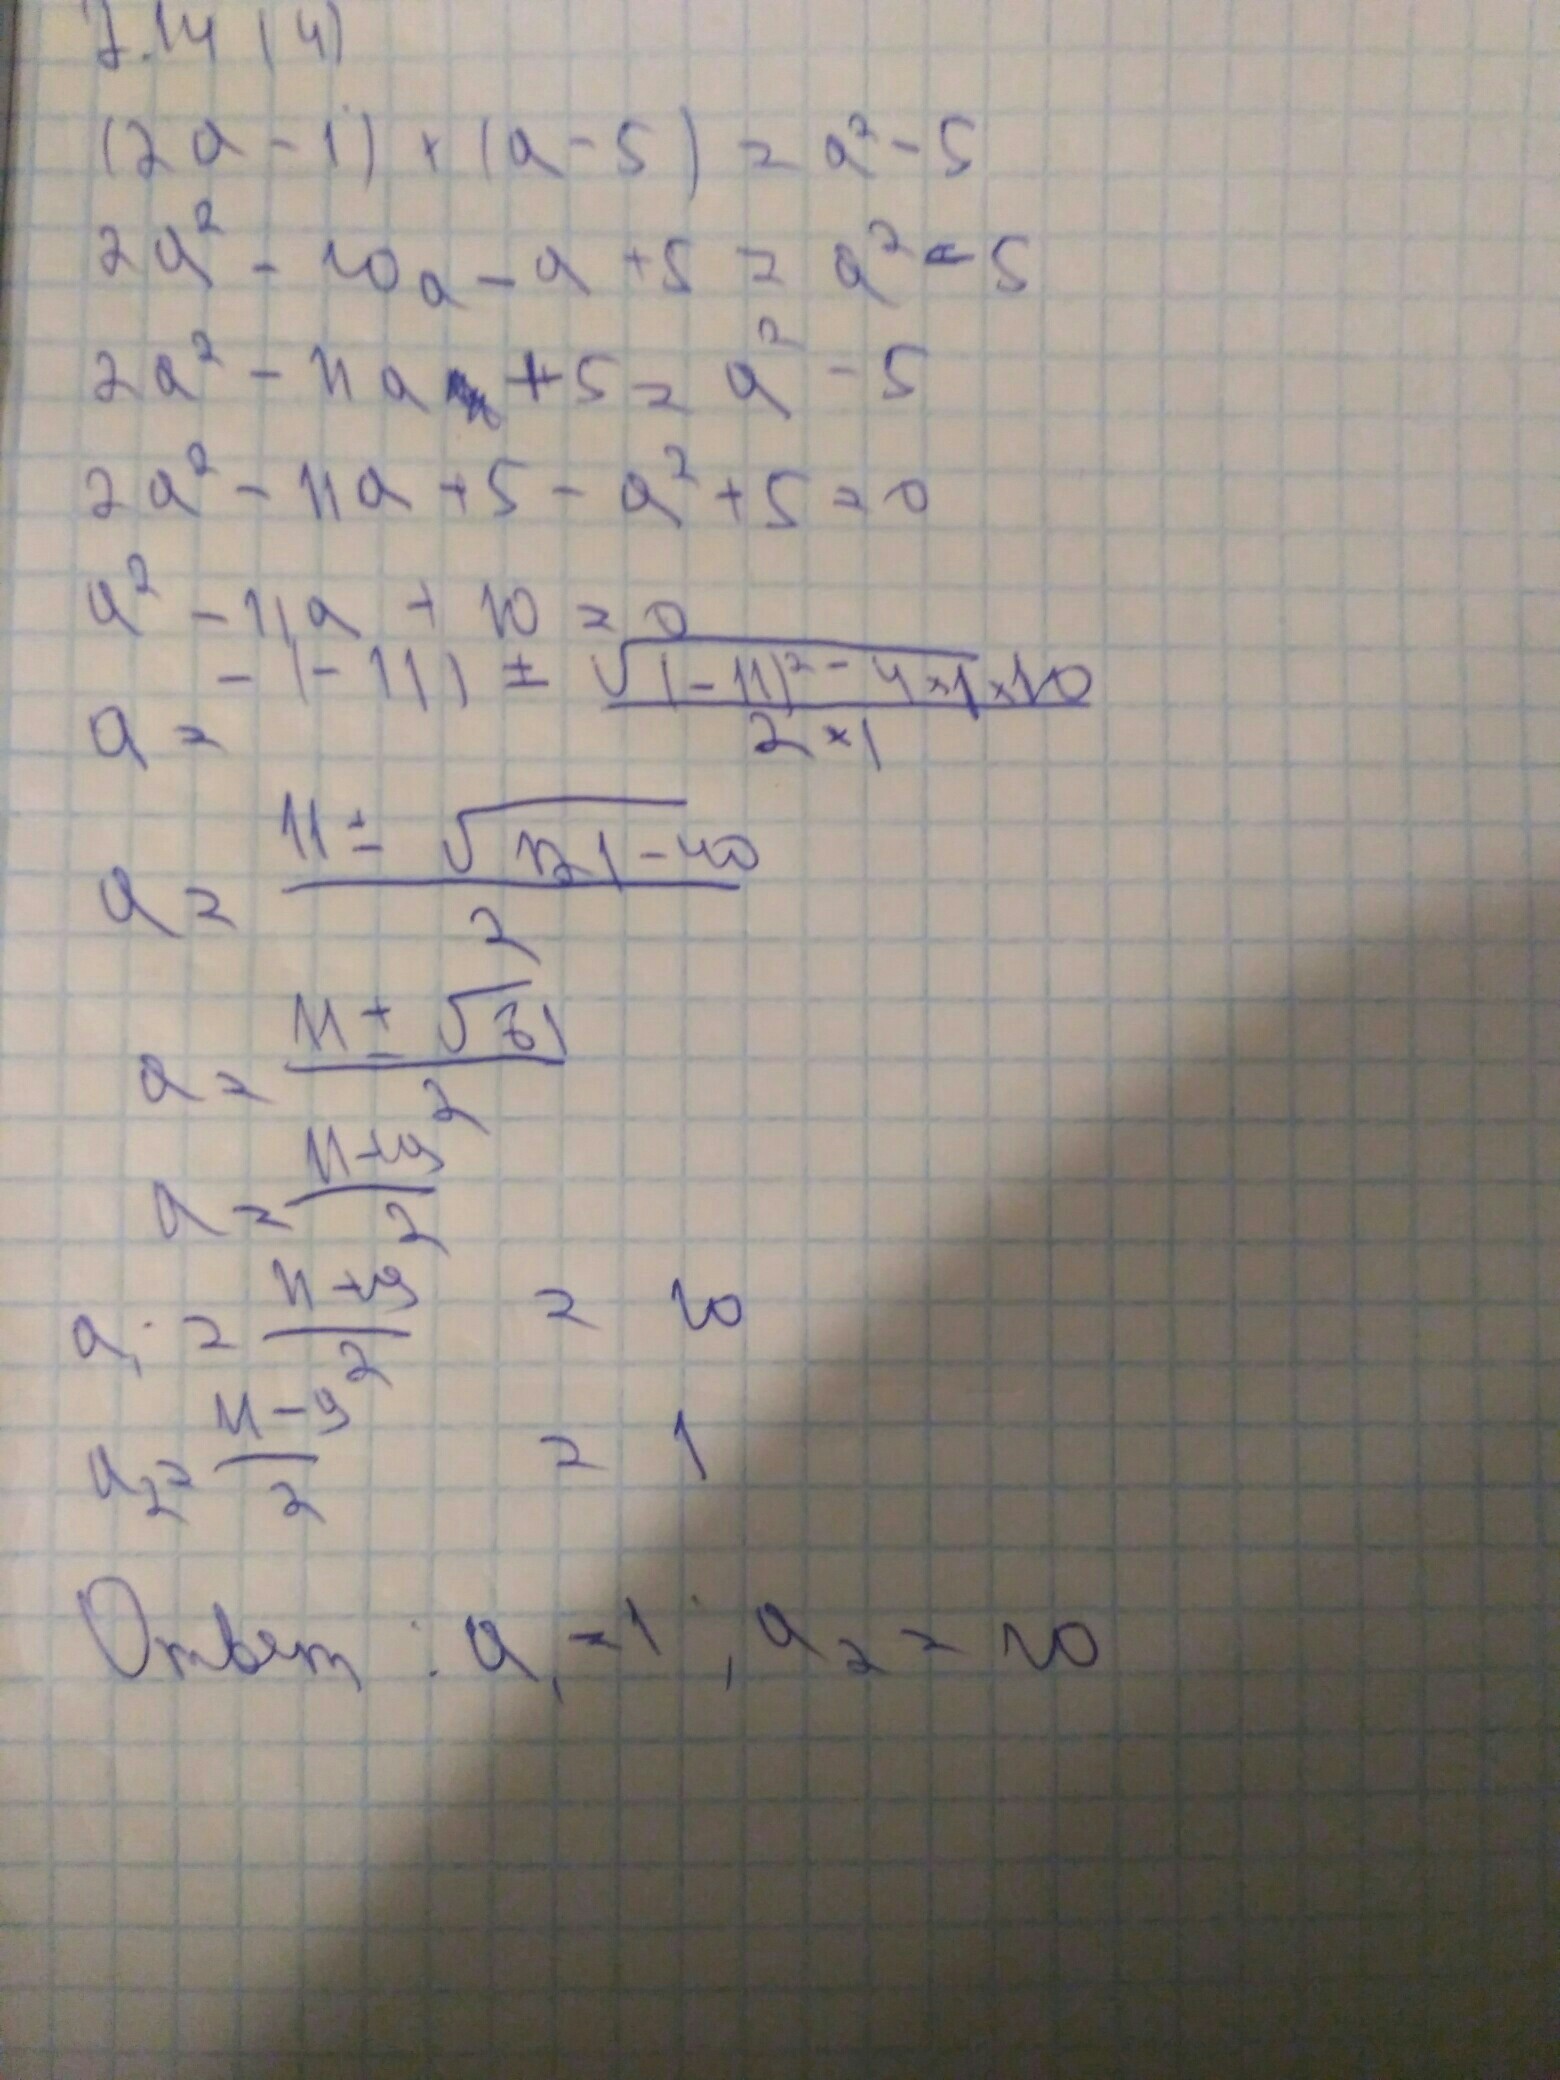 7.14 (4)
(2a - 1) + (a - 5) = a² - 5
2a² - 10a - a + 5 = a² - 5
2a² - 11a + 5 = a² - 5
2a² - 11a + 5 - a² + 5 = 0
a² - 11a + 10 = 0
a = (-(-11) ± √(-11)² - 4×1×10) / 2×1
a = (11 ± √121 - 40) / 2
a = (11 ± √81) / 2
a = (11+9) / 2
a₁ = (11+9) / 2 = 10
a₂ = (11-9) / 2 = 1
Ответ: a₁ = 1; a₂ = 10